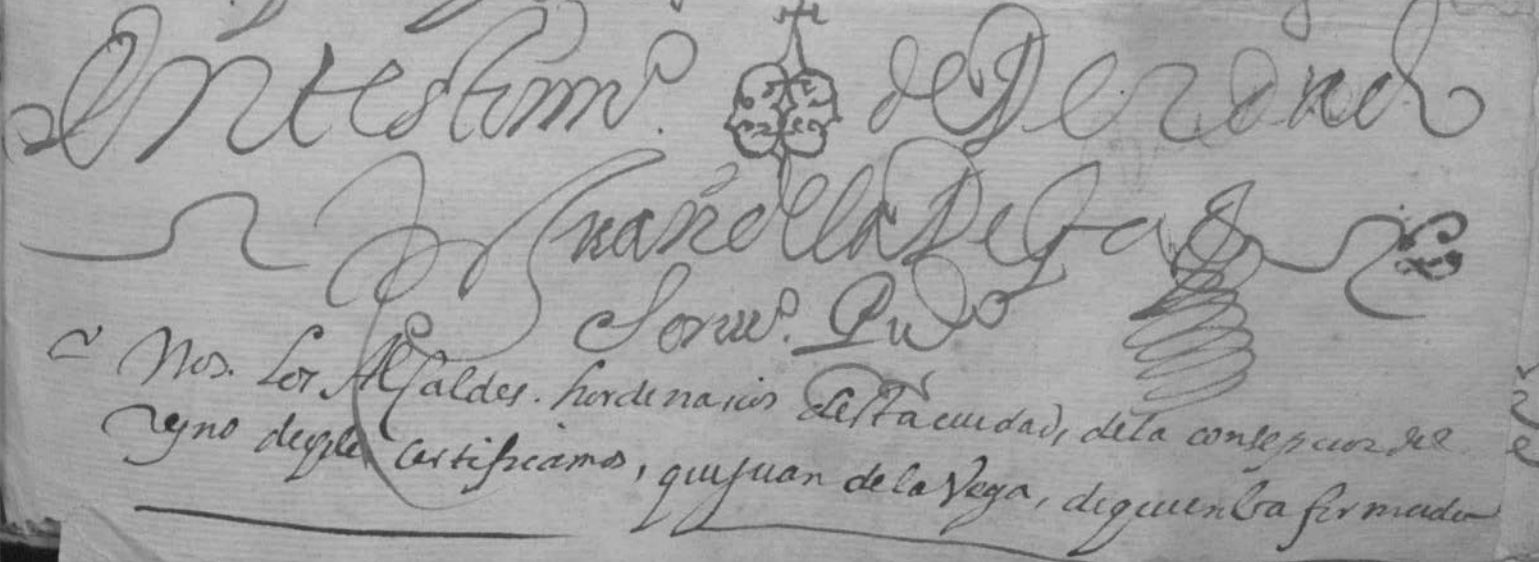 En testim.º de Verdad
Juan de la Vega
Scriu.º Puco
Nos. Los Alcaldes. hordenarios desta ciudad, de la consepcion del
reyno de chile certificamos, que Juan de la Vega, de quien ba firmado